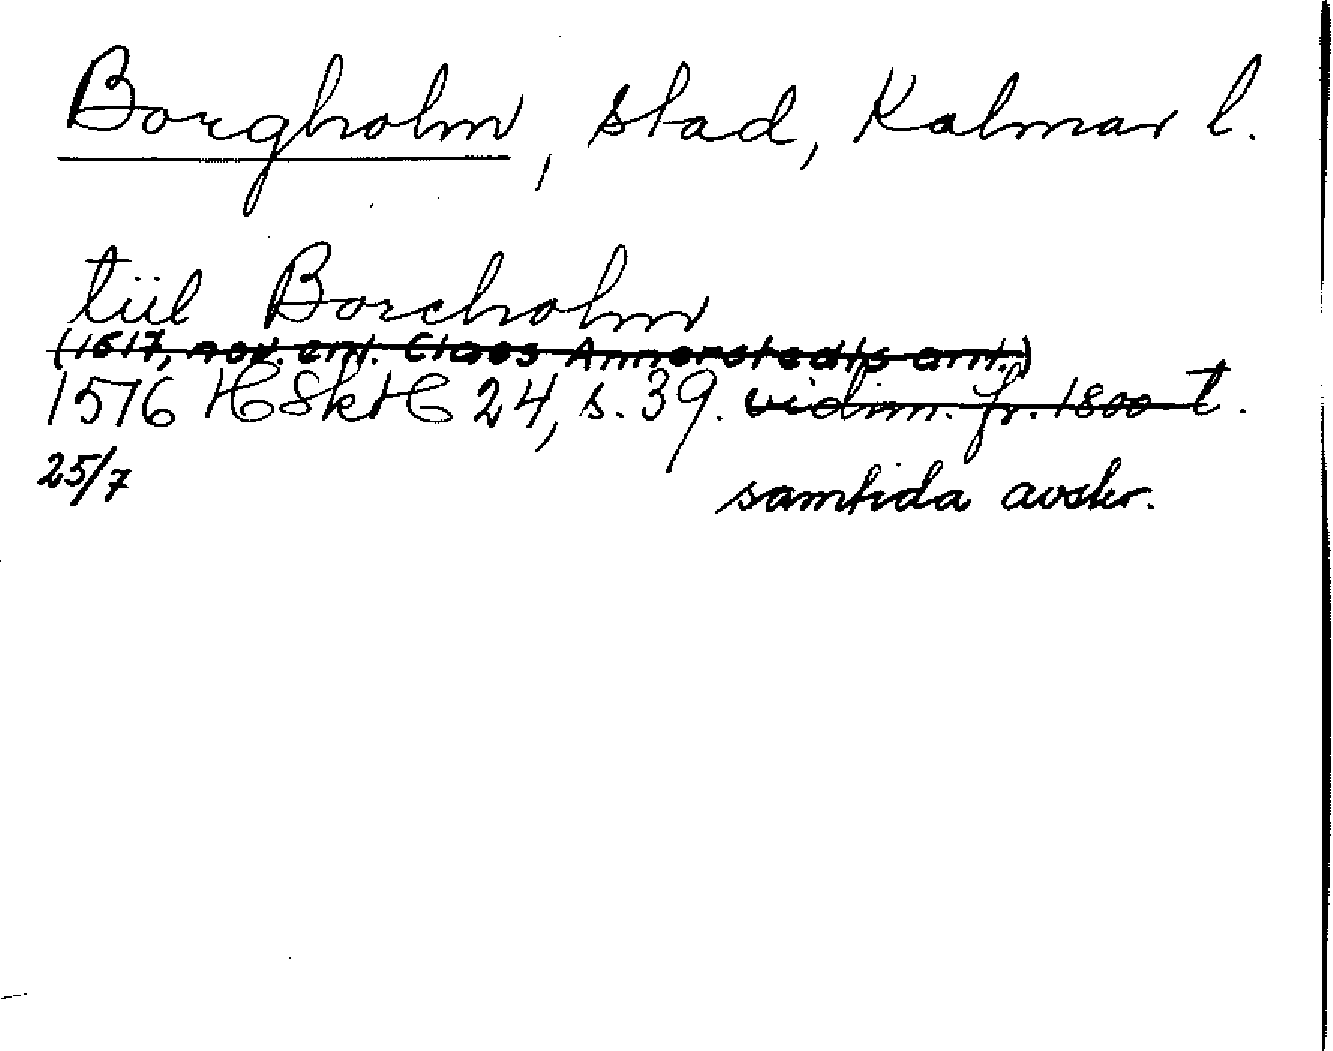 Borgholm, stad, Kalmar l.
tiil Borcholm
(1617, nov. enl. Claes Annerstedts ant.)
1576 HSkH 24, s. 39. vidim. fr. 1800-t.
25/7 samtida avskr.